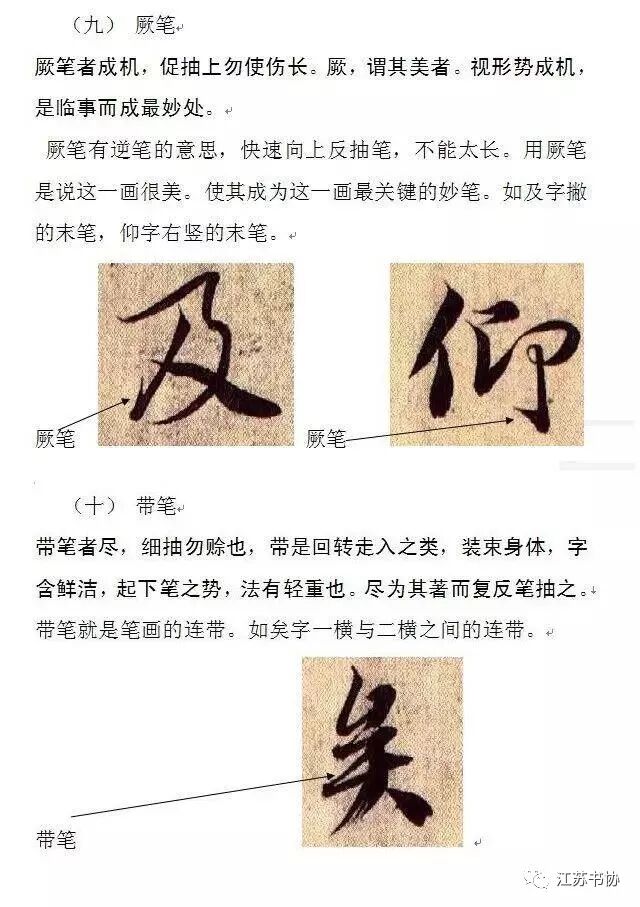 （九） 厥笔
厥笔者成机，促抽上勿使伤长。厥，谓其美者。视形势成机，
是临事而成最妙处。
厥笔有逆笔的意思，快速向上反抽笔，不能太长。用厥笔
是说这一画很美。使其成为这一画最关键的妙笔。如及字撇
的末笔，仰字右竖的末笔。
及 仰
厥笔 厥笔
（十） 带笔
带笔者尽，细抽勿赊也，带是回转走入之类，装束身体，字
含鲜洁，起下笔之势，法有轻重也。尽为其著而复反笔抽之。
带笔就是笔画的连带。如矣字一横与二横之间的连带。
矣
带笔
江苏书协